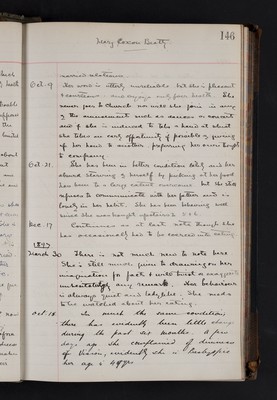 146
Mary Eaxon Beatty.
married relations.
Oct. 9 Her word is utterly unreliable but she is pleasant
& courteous and enjoys only fair health. She
never goes to Church nor will she join in any
of the amusements such as dances or concert
and if she is induced to take a hand at whist
she takes an early opportunity if possible of giving
of her hand to another, preferring her own thoughts
to company.
Oct. 31. She has been in better condition lately and her
absurd starving of herself by picking at her food
has been to a large extent overcome. but she still
refuses to communicate with her father and is
lonely in her habit. She has been behaving well
since she was brought upstairs to
Dec. 17 Continues as at last note though she
has occasionally has to be coerced into eating.
1899
March 30 There is not much new to note here
She is still much given to drawing on her
imagination for facts & will twist or exaggerate
any remark. Her behaviour
is always quiet and ladylike. She needs
to be watched about her eating.
Oct. 18. In much the same condition,
there has evidently been little change
during the past six months. A few
days ago she complained of dimness
of vision, evidently she is Presbyopic
her age is